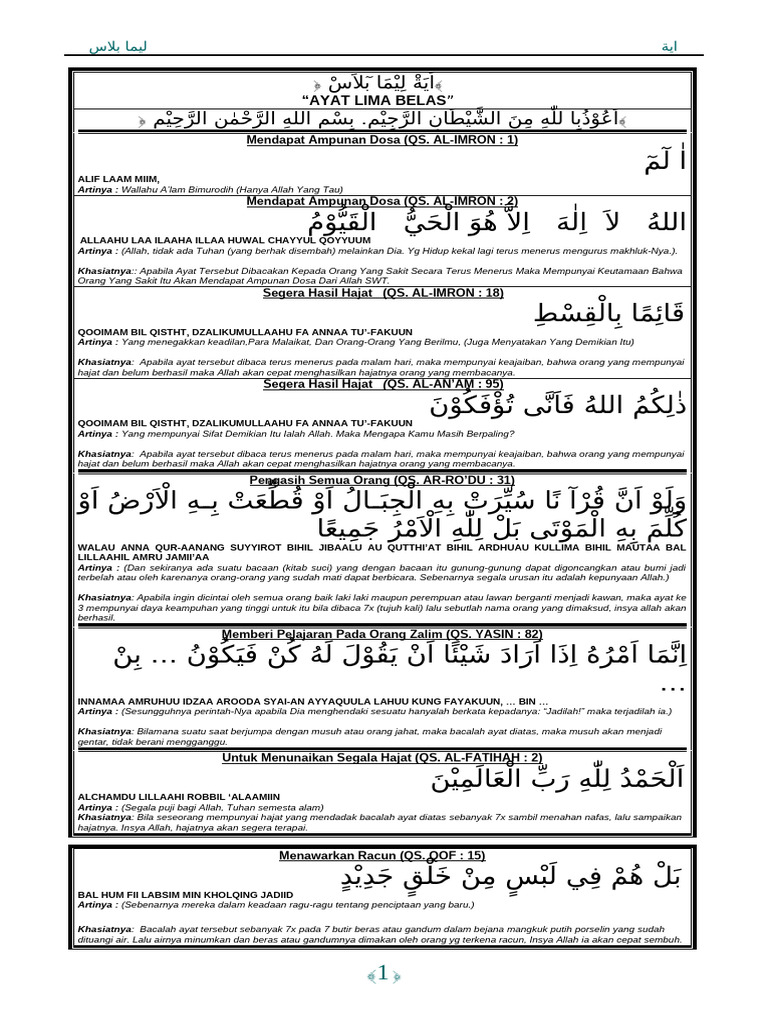 اية ليما بلاس
﴿اَيَةْ لِيْمَا بَلاَسْ﴾
“AYAT LIMA BELAS”
﴿اَعُوْذُبِا للّٰهِ مِنَ الشَّيْطَانِ الرَّجِيْمِ. بِسْمِ اللهِ الرَّحْمٰنِ الرَّحِيْمِ﴾
Mendapat Ampunan Dosa (QS. AL-IMRON : 1)
اٰ لٓمٓ
ALIF LAAM MIIM,
Artinya : Wallahu A’lam Bimurodih (Hanya Allah Yang Tau)
Mendapat Ampunan Dosa (QS. AL-IMRON : 2)
اللهُ لاَ اِلٰهَ اِلاَّ هُوَ الْحَيُّ الْقَيُّوْمُ
ALLAAHU LAA ILAAHA ILLAA HUWAL CHAYYUL QOYYUUM
Artinya : (Allah, tidak ada Tuhan (yang berhak disembah) melainkan Dia. Yg Hidup kekal lagi terus menerus mengurus makhluk-Nya.).
Khasiatnya:: Apabila Ayat Tersebut Dibacakan Kepada Orang Yang Sakit Secara Terus Menerus Maka Mempunyai Keutamaan Bahwa
Orang Yang Sakit Itu Akan Mendapat Ampunan Dosa Dari Allah SWT.
Segera Hasil Hajat (QS. AL-IMRON : 18)
قَائِمًا بِالْقِسْطِ
QOOIMAM BIL QISTHT, DZALIKUMULLAAHU FA ANNAA TU’-FAKUUN
Artinya : Yang menegakkan keadilan,Para Malaikat, Dan Orang-Orang Yang Berilmu, (Juga Menyatakan Yang Demikian Itu)
Khasiatnya: Apabila ayat tersebut dibaca terus menerus pada malam hari, maka mempunyai keajaiban, bahwa orang yang mempunyai
hajat dan belum berhasil maka Allah akan cepat menghasilkan hajatnya orang yang membacanya.
Segera Hasil Hajat (QS. AL-AN’AM : 95)
ذٰلِكُمُ اللهُ فَاَنَّى تُؤْفَكُوْنَ
QOOIMAM BIL QISTHT, DZALIKUMULLAAHU FA ANNAA TU’-FAKUUN
Artinya : Yang mempunyai Sifat Demikian Itu Ialah Allah. Maka Mengapa Kamu Masih Berpaling?
Khasiatnya: Apabila ayat tersebut dibaca terus menerus pada malam hari, maka mempunyai keajaiban, bahwa orang yang mempunyai
hajat dan belum berhasil maka Allah akan cepat menghasilkan hajatnya orang yang membacanya.
Pengasih Semua Orang (QS. AR-RO’DU : 31)
وَلَوْ اَنَّ قُرْآ نًا سُيِّرَتْ بِهِ الْجِبَـالُ اَوْ قُطِّعَتْ بِـهِ الْاَرْضُ اَوْ
كُلِّمَ بِهِ الْمَوْتَى بَلْ لِلّٰهِ الْاَمْرُ جَمِيعًا
WALAU ANNA QUR-AANANG SUYYIROT BIHIL JIBAALU AU QUTTHI’AT BIHIL ARDHUAU KULLIMA BIHIL MAUTAA BAL
LILLAAHIL AMRU JAMII’AA
Artinya : (Dan sekiranya ada suatu bacaan (kitab suci) yang dengan bacaan itu gunung-gunung dapat digoncangkan atau bumi jadi
terbelah atau oleh karenanya orang-orang yang sudah mati dapat berbicara. Sebenarnya segala urusan itu adalah kepunyaan Allah.)
Khasiatnya: Apabila ingin dicintai oleh semua orang baik laki laki maupun perempuan atau lawan berganti menjadi kawan, maka ayat ke
3 mempunyai daya keampuhan yang tinggi untuk itu bila dibaca 7x (tujuh kali) lalu sebutlah nama orang yang dimaksud, insya allah akan
berhasil.
Memberi Pelajaran Pada Orang Zalim (QS. YASIN : 82)
اِنَّمَا اَمْرُهُ اِذَا اَرَادَ شَيْئًا اَنْ يَقُوْلَ لَهُ كُنْ فَيَكُوْنُ ... بِنْ
...
INNAMAA AMRUHUU IDZAA AROODA SYAI-AN AYYAQUULA LAHUU KUNG FAYAKUUN, … BIN …
Artinya : (Sesungguhnya perintah-Nya apabila Dia menghendaki sesuatu hanyalah berkata kepadanya: “Jadilah!” maka terjadilah ia.)
Khasiatnya: Bilamana suatu saat berjumpa dengan musuh atau orang jahat, maka bacalah ayat diatas, maka musuh akan menjadi
gentar, tidak berani mengganggu.
Untuk Menunaikan Segala Hajat (QS. AL-FATIHAH : 2)
اَلْحَمْدُ لِلّٰهِ رَبِّ الْعَالَمِيْنَ
ALCHAMDU LILLAAHI ROBBIL ‘ALAAMIIN
Artinya : (Segala puji bagi Allah, Tuhan semesta alam)
Khasiatnya: Bila seseorang mempunyai hajat yang mendadak bacalah ayat diatas sebanyak 7x sambil menahan nafas, lalu sampaikan
hajatnya. Insya Allah, hajatnya akan segera terapai.
Menawarkan Racun (QS. QOF : 15)
بَلْ هُمْ فِي لَبْسٍ مِنْ خَلْقٍ جَدِيْدٍ
BAL HUM FII LABSIM MIN KHOLQING JADIID
Artinya : (Sebenarnya mereka dalam keadaan ragu-ragu tentang penciptaan yang baru.)
Khasiatnya: Bacalah ayat tersebut sebanyak 7x pada 7 butir beras atau gandum dalam bejana mangkuk putih porselin yang sudah
dituangi air. Lalu airnya minumkan dan beras atau gandumnya dimakan oleh orang yg terkena racun, Insya Allah ia akan cepat sembuh.
﴾1﴿